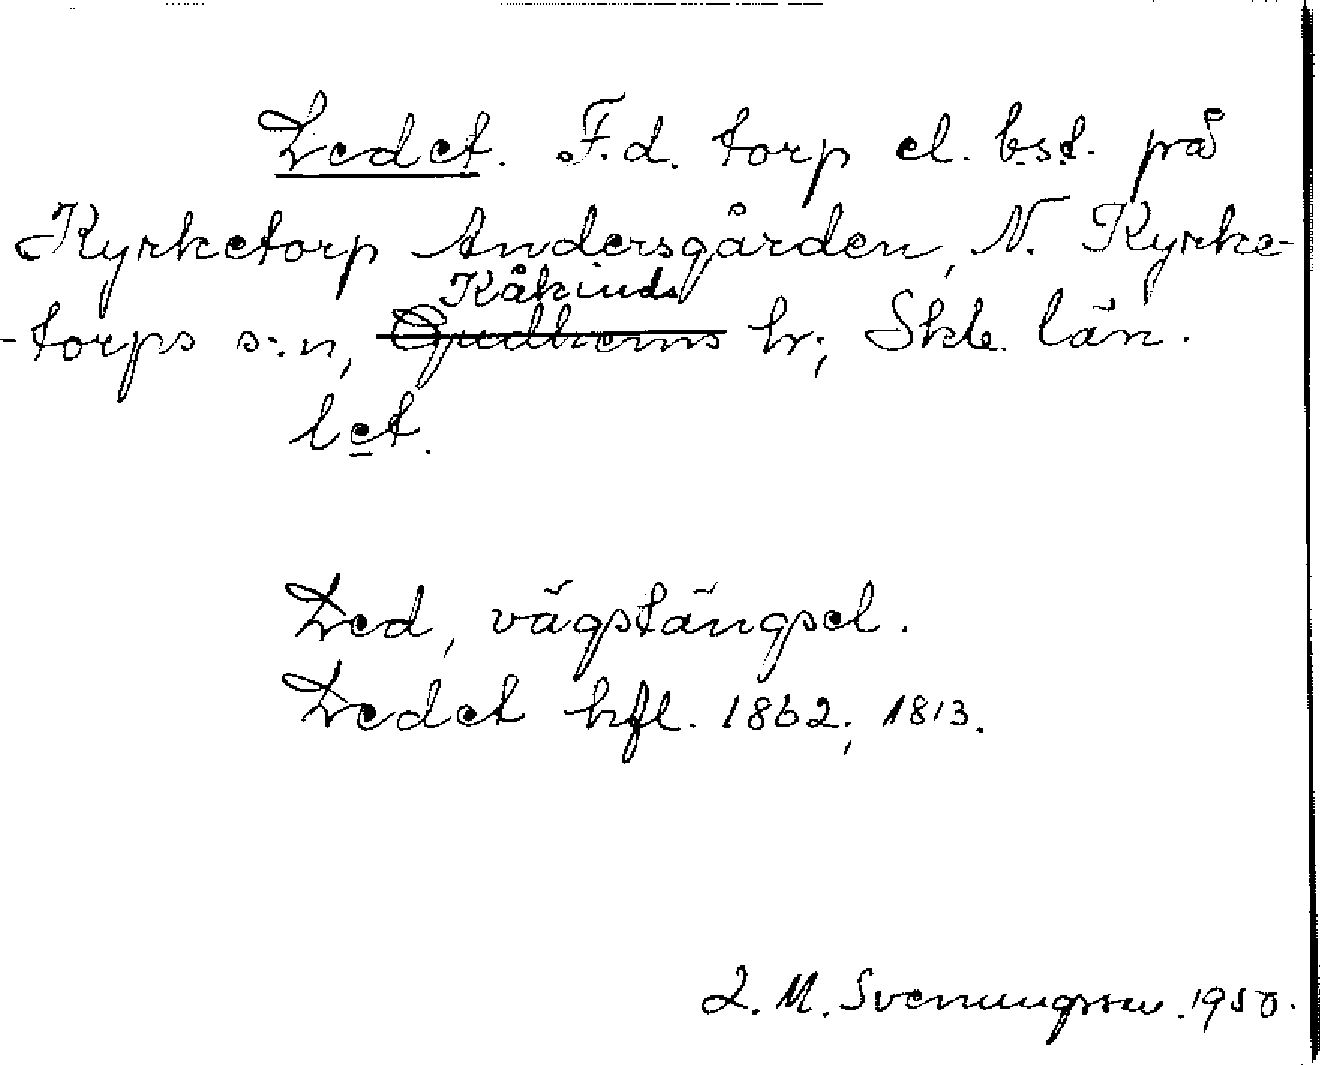 Ledet. F.d. torp el. bst. på
Kyrketorp Andersgården, N. Kyrke-
Kåkinds
-torps s:n, Gudhems hr; Skb. län.
let.
Led, vägstängsel.
Ledet hfl. 1862; 1813.
L. M. Svenungsson. 1950.